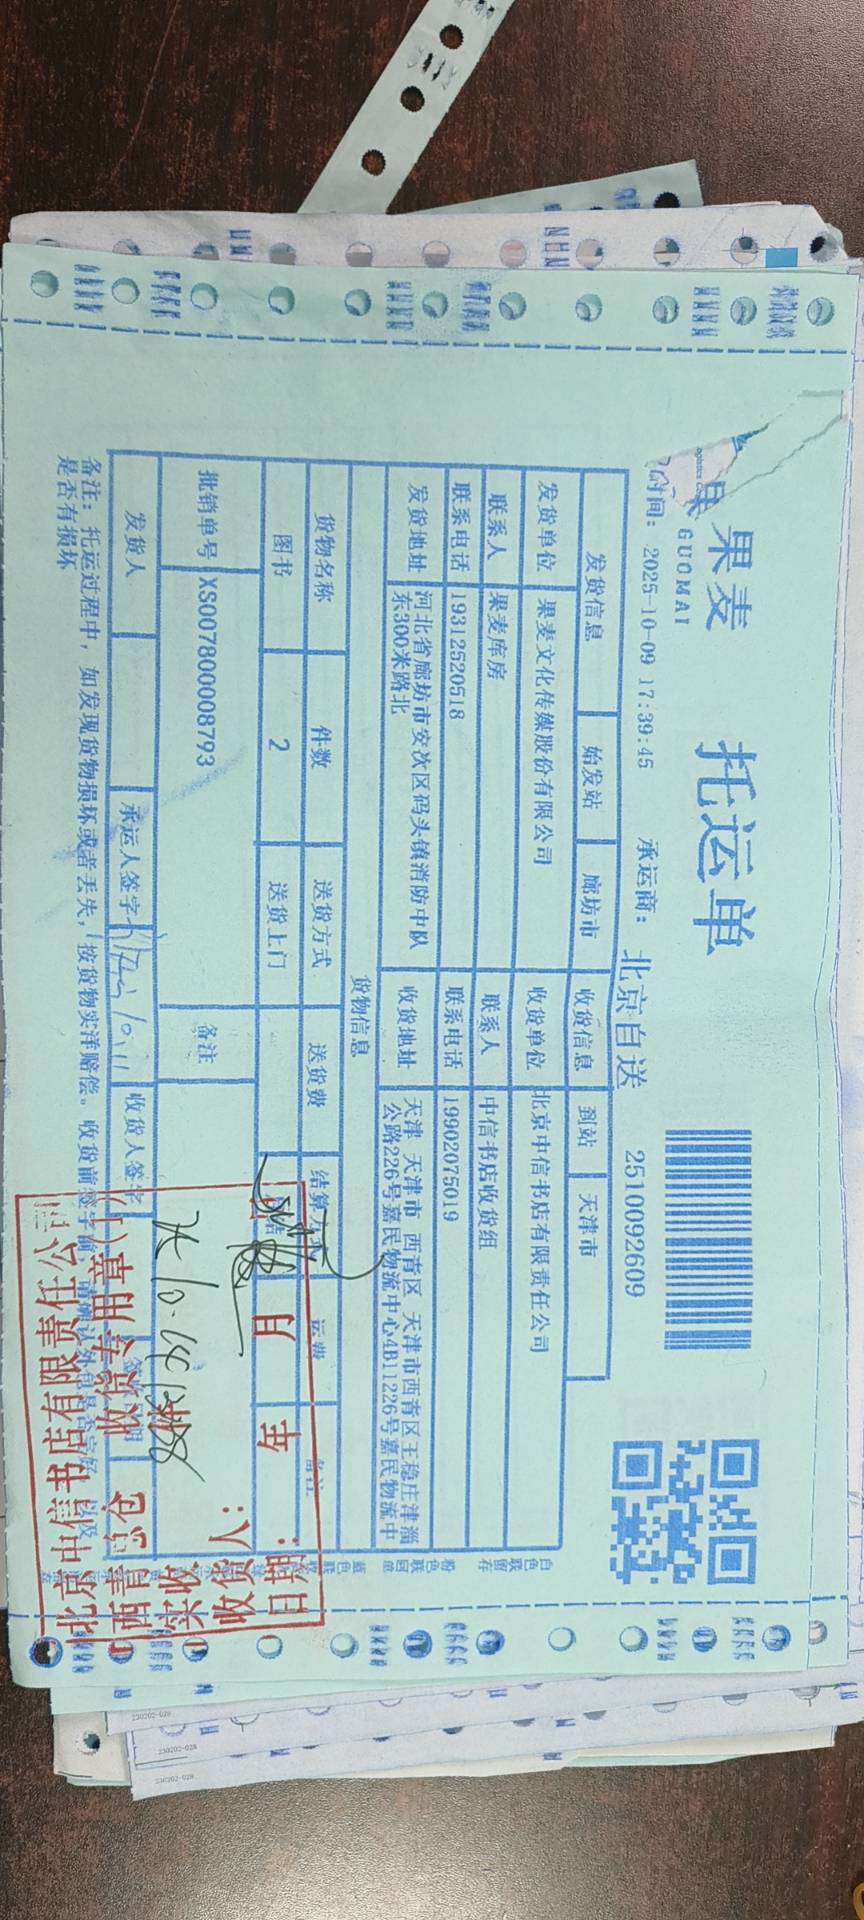 果麦
GUOMAI
托运单
时间: 2025-10-09 17:39:45
承运商: 北京自送
2510092609
发货信息 始发站 廊坊市 收货信息 到站 天津市
发货单位 果麦文化传媒股份有限公司 收货单位 北京中信书店有限责任公司
联系人 果麦库房 联系人 中信书店收货组
联系电话 19312520518 联系电话 19902075019
发货地址 河北省廊坊市安次区码头镇消防中队东300米路北 收货地址 天津 天津市 西青区 天津市西青区王稳庄津淄公路226号嘉民物流中心4B11226号嘉民物流中
货物信息
货物名称 件数 送货方式 送货费 结算方式 运费 备注
图书 2 送货上门
批销单号 XS007800008793 备注
发货人 承运人签字 10.11 收货人签字
备注: 托运过程中, 如发现货物损坏或者丢失, 按货物实洋赔偿。收货前
是否有损坏
北京中信书店有限责任公司
西青总仓 收货专用章(1)
实收: 件
收货人:
日期: 年 月